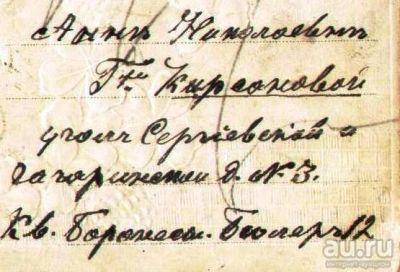 Аннѣ Николаевнѣ
Г-жѣ Кирсановой
уголъ Сергіевской и
Гагаринской д. № 3.
Кв. Баронессы Бюлеръ 12
au.ru